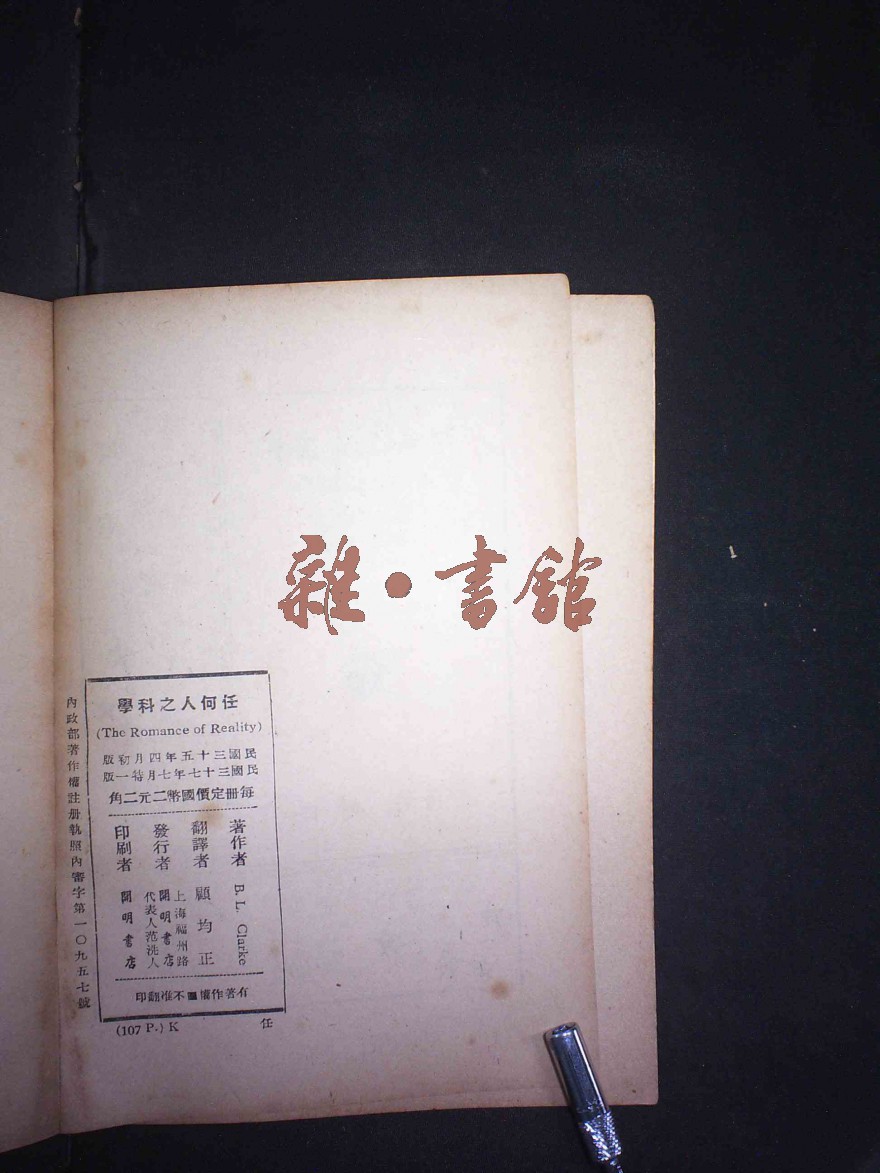 雜·書館
任何人之科學
(The Romance of Reality)
民國三十五年四月初版
民國三十七年七月特一版
每冊定價國幣二元二角
著作者 B. L. Clarke
翻譯者 顧均正
發行者 上海福州路
開明書店
代表人范洗人
印刷者 開明書店
有著作權■不准翻印
(107 P.) K 任
內政部著作權註冊執照內審字第一〇九五七號